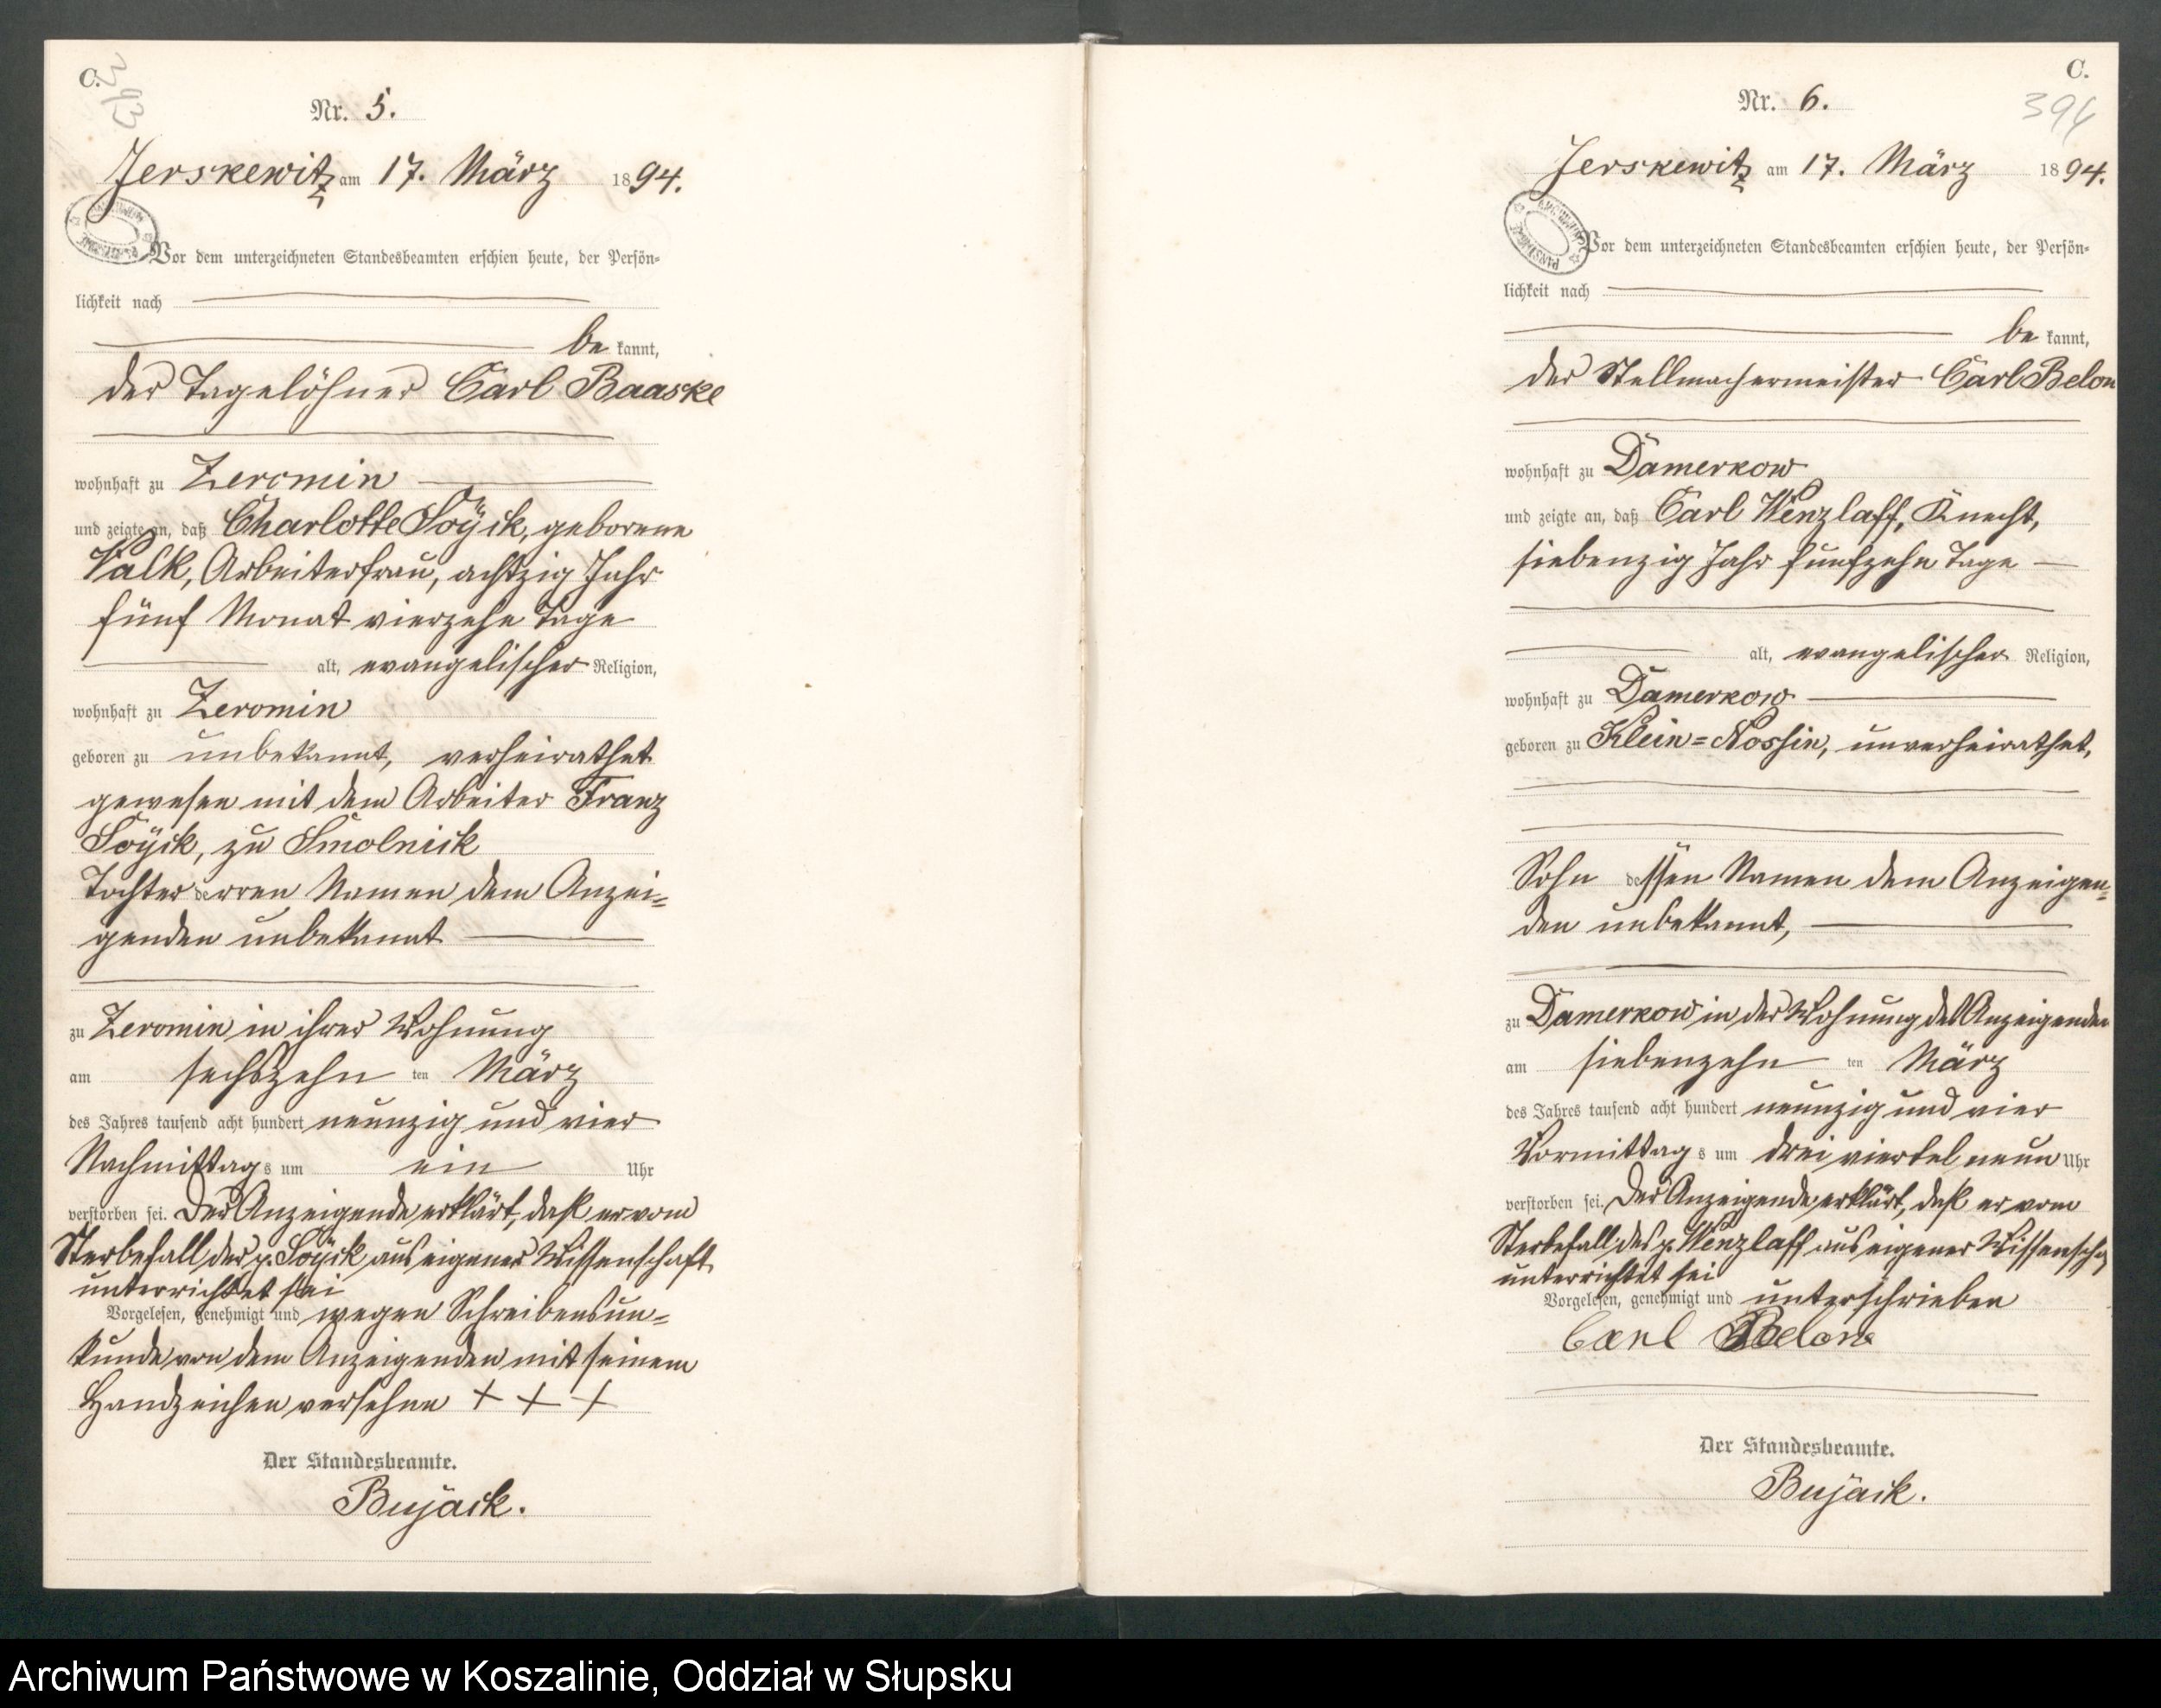 C.
393
Nr. 5.
Jerskewitz am 17. März 1894.
Vor dem unterzeichneten Standesbeamten erschien heute, der Persön-
lichkeit nach
be kannt,
der Tagelöhner Carl Baaske
wohnhaft zu Zeromin
und zeigte an, daß Charlotte Soyck, geborene
Valk, Arbeiterfrau, achtzig Jahr
fünf Monat vierzehn Tage
alt, evangelischer Religion,
wohnhaft zu Zeromin
geboren zu unbekannt, verheirathet
gewesen mit dem Arbeiter Franz
Soyck, zu Smolnick
Tochter derren Namen dem Anzei=
genden unbekannt
zu Zeromin in ihrer Wohnung
am sechszehn ten März
des Jahres tausend acht hundert neunzig und vier
Nachmittag s um ein Uhr
verstorben sei. Der Anzeigende erklärt, daß er vom
Sterbefall der p. Soyck aus eigener Wissenschaft
unterrichtet sei
Vorgelesen, genehmigt und wegen Schreibensun=
kunde von dem Anzeigenden mit seinem
Handzeichen versehen + + +
Der Standesbeamte.
Bujack.
C.
394
Nr. 6.
Jerskewitz am 17. März 1894.
Vor dem unterzeichneten Standesbeamten erschien heute, der Persön-
lichkeit nach
be kannt,
der Stellmachermeister Carl Belon
wohnhaft zu Damerkow
und zeigte an, daß Carl Wenzlaff, Knecht,
siebenzig Jahr funfzehn Tage
alt, evangelischer Religion,
wohnhaft zu Damerkow
geboren zu Klein=Nossin, unverheirathet,
Sohn dessen Namen dem Anzeigen=
den unbekannt,
zu Damerkow in der Wohnung des Anzeigenden
am siebenzehn ten März
des Jahres tausend acht hundert neunzig und vier
Vormittag s um drei viertel neun Uhr
verstorben sei. Der Anzeigende erklärt, daß er vom
Sterbefall des p. Wenzlaff aus eigener Wissenscha
unterrichtet sei
Vorgelesen, genehmigt und unterschrieben
Carl Belon
Der Standesbeamte.
Bujack.
Archiwum Państwowe w Koszalinie, Oddział w Słupsku